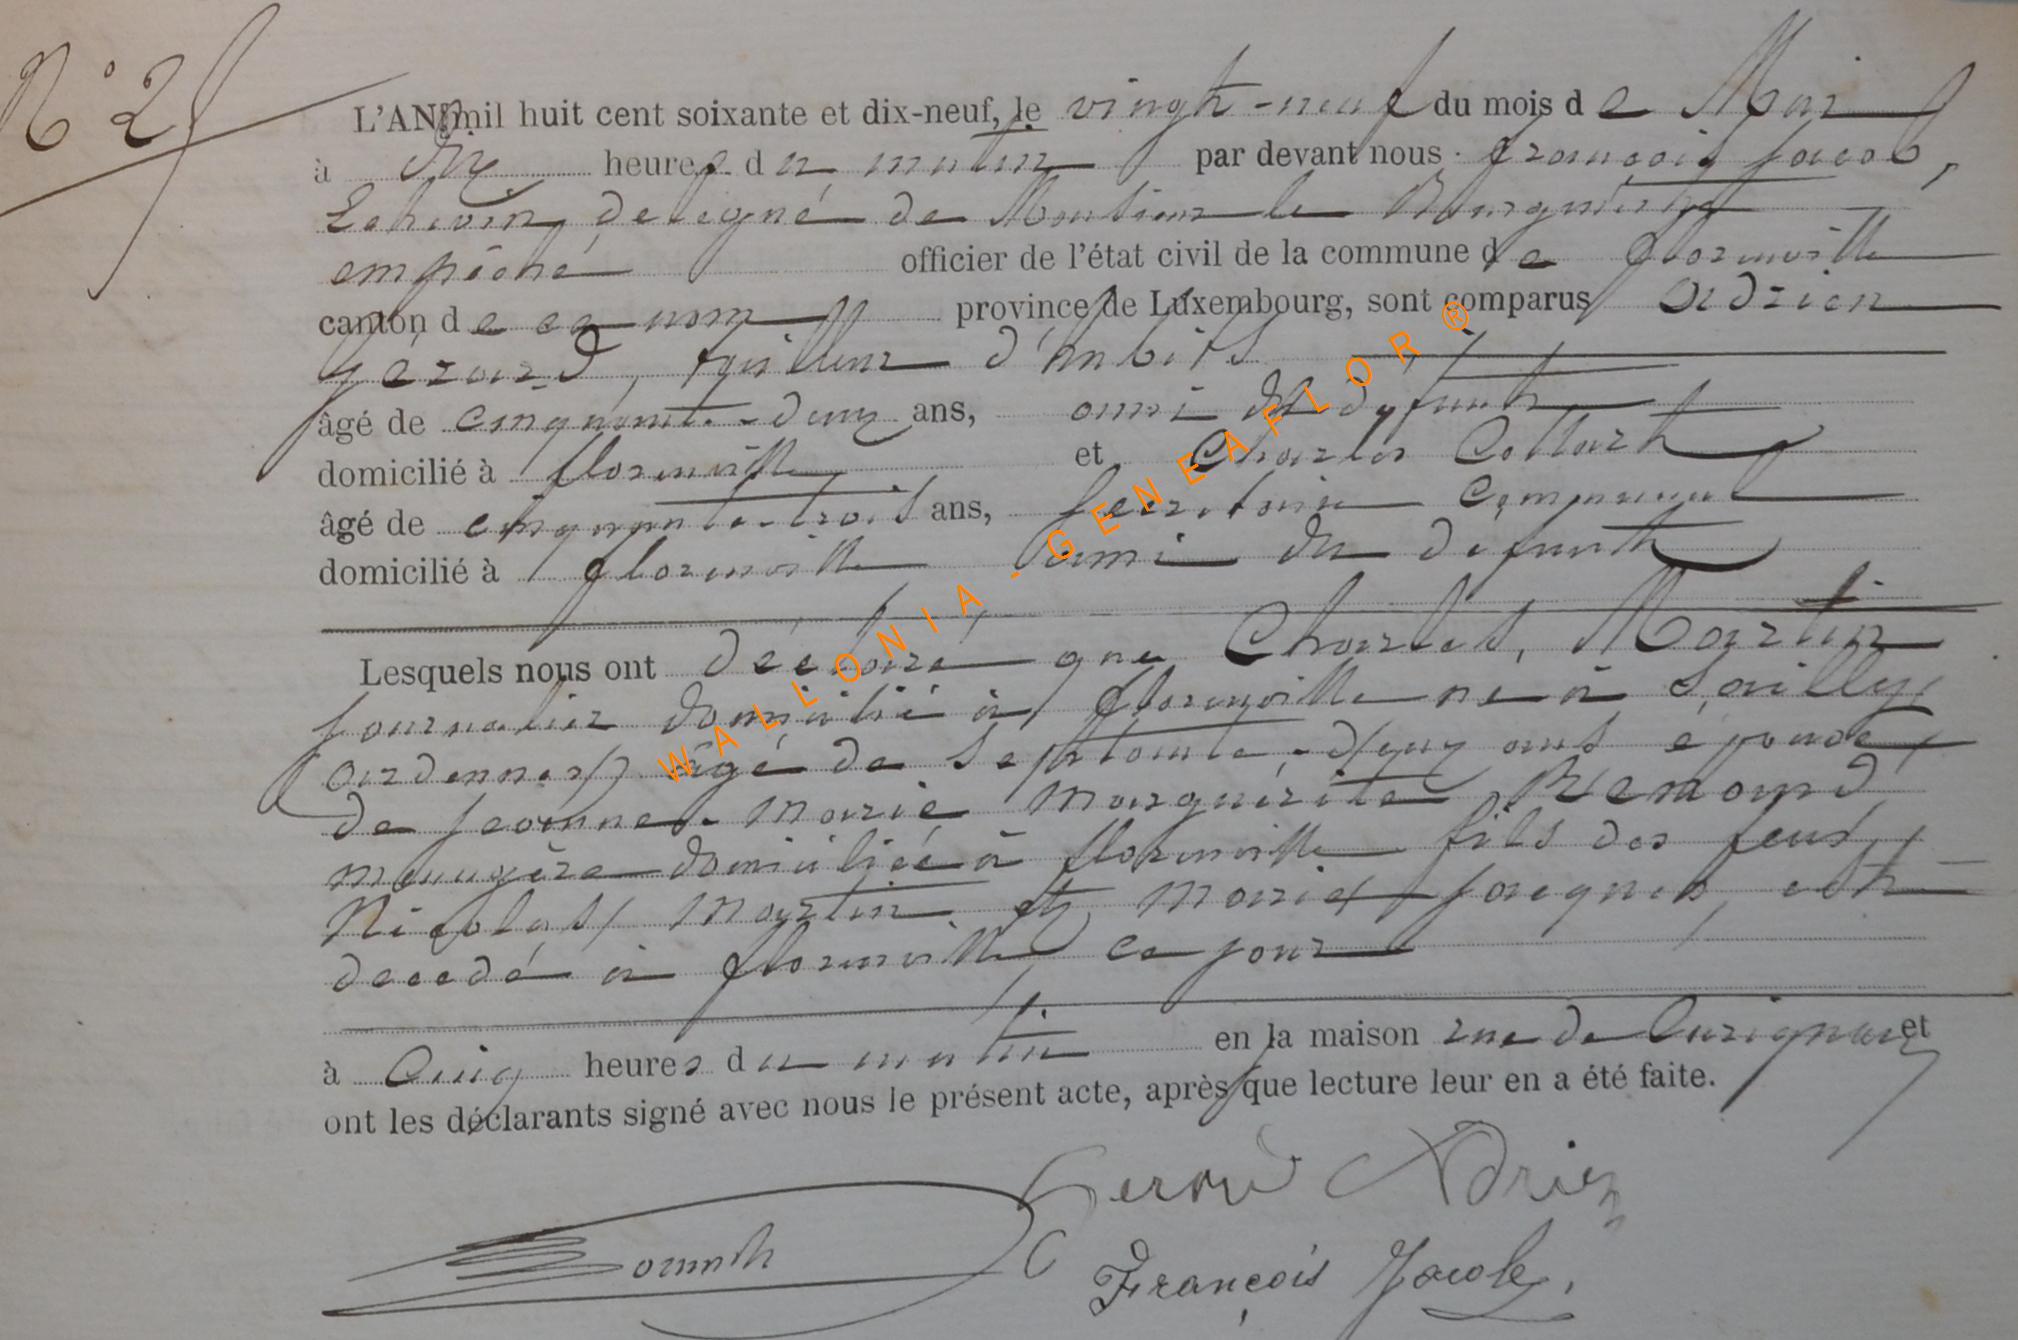 N° 25
L'AN mil huit cent soixante et dix-neuf, le vingt-neuf du mois de Mai
à dix heures du matin par devant nous François Jacob,
Echevin, délégué de Monsieur le Bourgmestre
empêché officier de l'état civil de la commune de Florenville
canton de ce nom province de Luxembourg, sont comparus Adrien
Gérard, tailleur d'habits
âgé de cinquante-deux ans, ami du défunt
domicilié à Florenville et Charles Collart
âgé de cinquante-trois ans, secrétaire communal
domicilié à Florenville ami du défunt
Lesquels nous ont déclaré que Charles, Martin
journalier domicilié à Florenville né à Sailly
(Ardennes) âgé de septante-deux ans époux
de Jeanne-Marie Marguerite Remond,
ménagère domiciliée à Florenville fils des feus
Nicolas Martin et Marie Jacques, est
décédé à Florenville ce jour
à Cinq heures du matin en la maison rue de Carignan et
ont les déclarants signé avec nous le présent acte, après que lecture leur en a été faite.
Gerard Adrien
François Jacob,
WALLONIA - GENEAFLOR ®